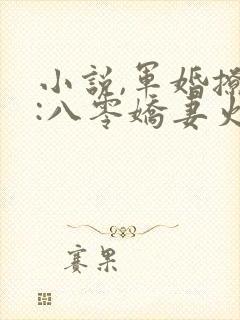 小說,軍婚撩
:八零嬌妻火
賽果